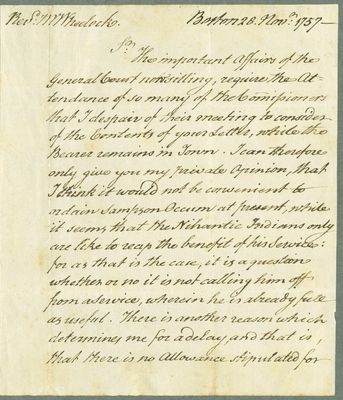 Revd. Mr Wheelock. Boston 28. Novr. 1757—
Sr.
The important Affairs of the
General Court now sitting, require the At-
tendance of so many of the Comissioners
that I despair of their meeting to consider
of the Contents of your Letter, while the
Bearer remains in Town. I can therefore
only give you my private Opinion, that
I think it would not be convenient to
ordain Sampson Occum at present, while
it seems that the Nihantic Indians only
are like to reap the benefit of his Service:
for as that is the case, it is a question
whether or no it is not calling him off
from a Service, wherein he is already full
as useful. There is another reason which
determines me for a delay, and that is,
that there is no Allowance stipulated for